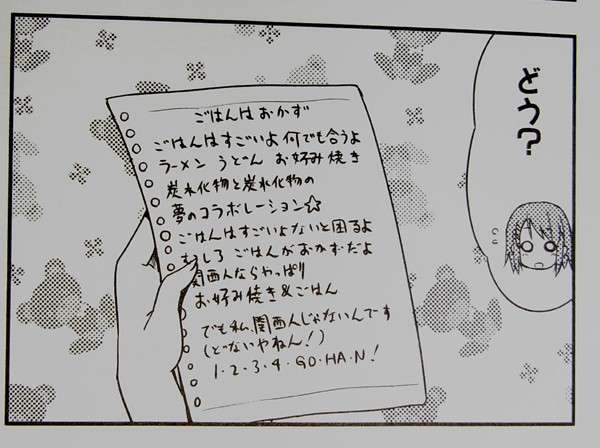 どう?
ごはんはおかず
ごはんはすごいよ何でも合うよ
ラーメン うどん お好み焼き
炭水化物と炭水化物の
夢のコラボレーション☆
ごはんはすごいよないと困るよ
むしろ ごはんがおかずだよ
関西人ならやっぱり
お好み焼き&ごはん
でも私、関西人じゃないんです
(どないやねん!)
1・2・3・4・GO・HA・N!